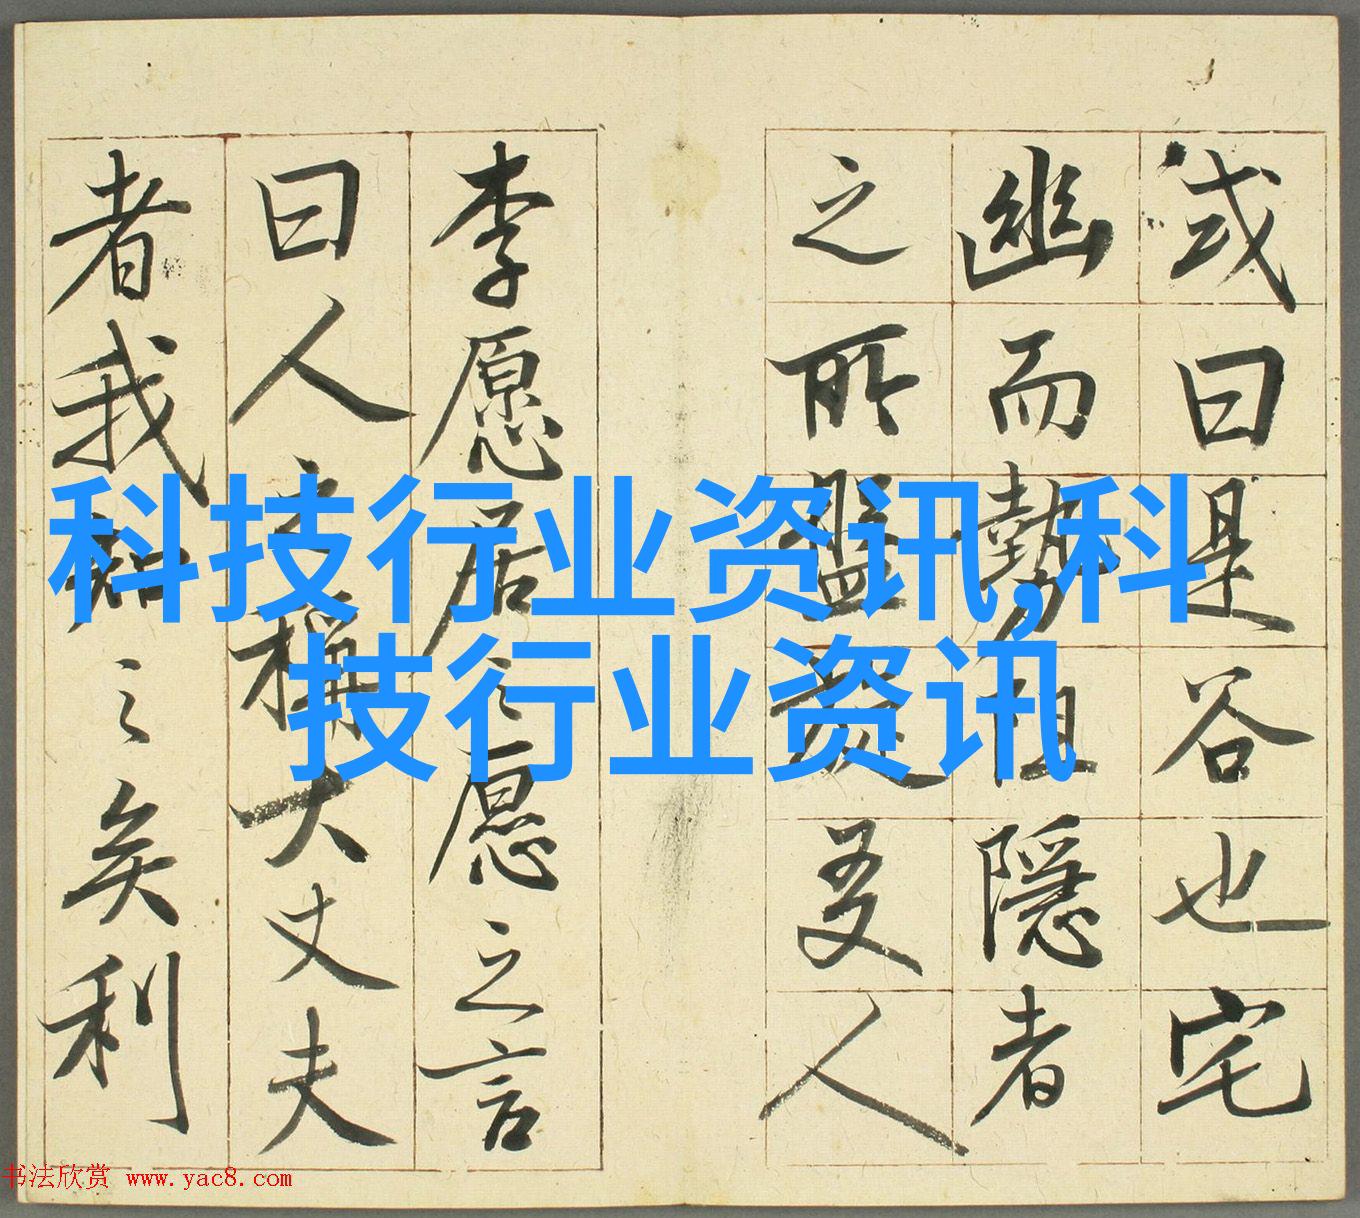 或曰是谷也宅
幽而勢阻隱者
之所盤旋友人
李愿居之愿之言
曰人之稱大丈夫
者我知之矣利
科技行业资讯,科
技行业资讯
书法欣赏 www.yac8.com